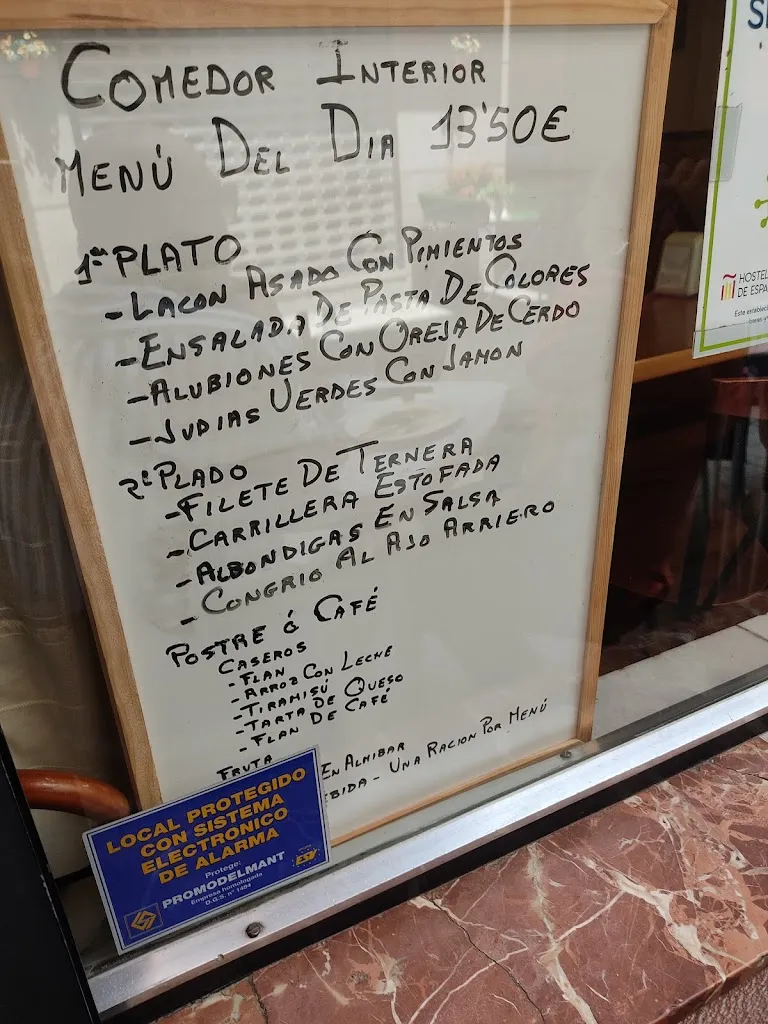 COMEDOR INTERIOR
MENÚ DEL DIA 13'50€
1er PLATO
- LACON ASADO CON PIMIENTOS
- ENSALADA DE PASTA DE COLORES
- ALUBIONES CON OREJA DE CERDO
- JUDIAS VERDES CON JAMON
2º PLADO
- FILETE DE TERNERA
- CARRILLERA ESTOFADA
- ALBONDIGAS EN SALSA
- CONGRIO AL AJO ARRIERO
POSTRE ó CAFÉ
CASEROS
- FLAN
- ARROZ CON LECHE
- TIRAMISÚ
- TARTA DE QUESO
- FLAN DE CAFÉ
FRUTA
EN ALMIBAR
EBIDA - UNA RACION POR MENÚ
LOCAL PROTEGIDO
CON SISTEMA
ELECTRONICO
DE ALARMA
Protege:
PROMODELMANT
Empresa homologada
D.G.S. nº 1484
HOSTEL
DE ESPA
Este estableci